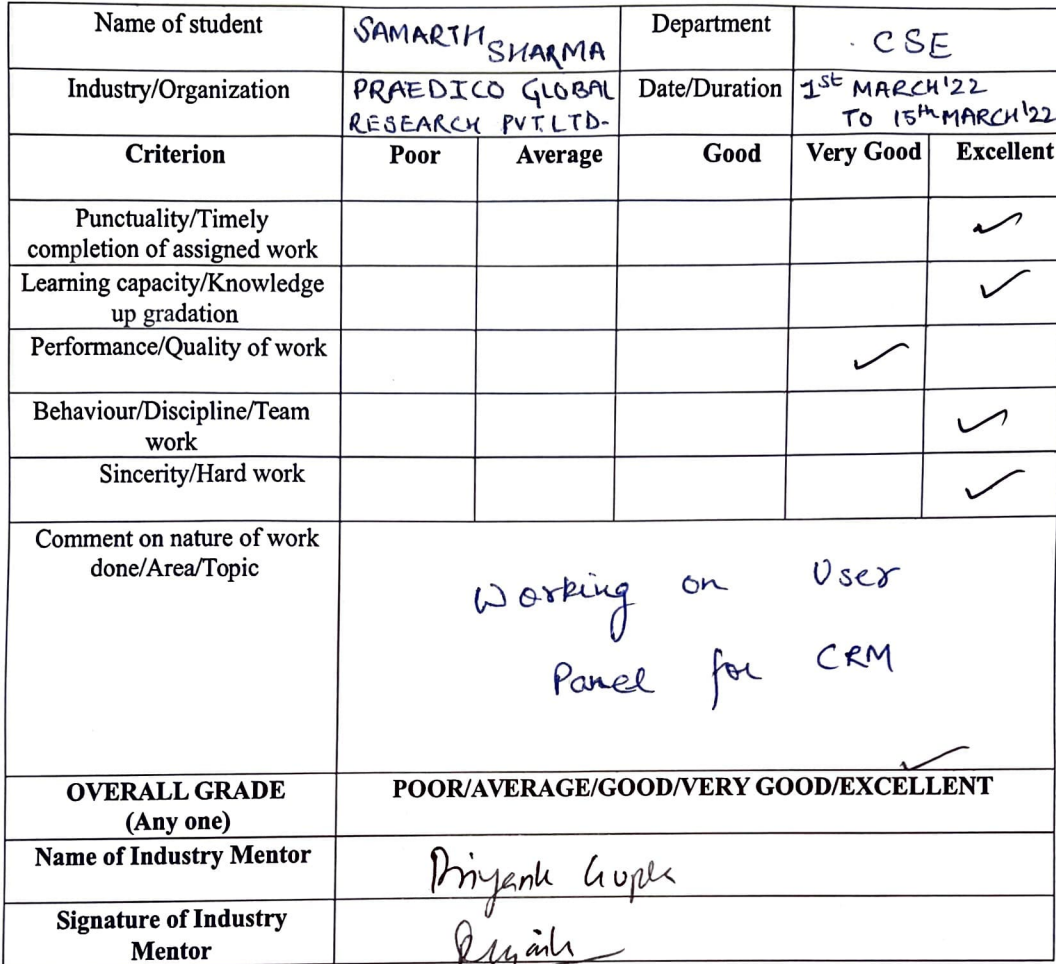 Name of student SAMARTH SHARMA Department CSE
Industry/Organization PRAEDICO GLOBAL Date/Duration 1st MARCH'22
RESEARCH PVT.LTD- TO 15th MARCH'22
Criterion Poor Average Good Very Good Excellent
Punctuality/Timely
completion of assigned work
Learning capacity/Knowledge
up gradation
Performance/Quality of work
Behaviour/Discipline/Team
work
Sincerity/Hard work
Comment on nature of work
done/Area/Topic
Working on User
Panel for CRM
OVERALL GRADE POOR/AVERAGE/GOOD/VERY GOOD/EXCELLENT
(Any one)
Name of Industry Mentor Priyank Gupta
Signature of Industry
Mentor